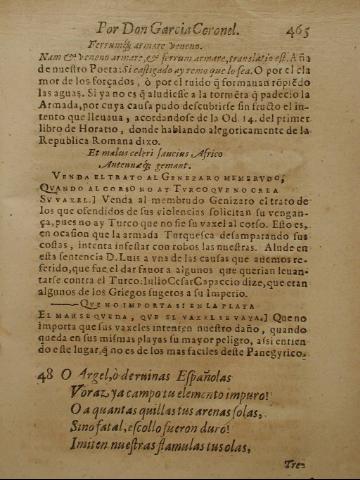 Por Don Garcia Coronel. 465
Ferrumq́; armare veneno.
Nam & veneno armare, & ferrum armare, translatio est. Aña
de nuestro Poeta: Si castigado ay remo que lo sea. O por el cla
mor de los forçados, ó por el ruido q̃ formauan rõpiẽdo
las aguas. Si ya no es q̃ aludiesse a la tormẽta q̃ padeciò la
Armada, por cuya causa pudo descubrirse sin fructo el in-
tento que lleuaua, acordandose de la Od. 14. del primer
libro de Horatio, donde hablando alegoricamente de la
Republica Romana dixo.
Et malus celeri saucius Africo
Antennæq́; gemant.
VENDA EL TRATO AL GENEZARO MEMBRUDO,
QUANDO AL CORSO NO AY TURCO QUE NO CREA
SU VAXEL.] Venda al membrudo Genizaro el trato de
los que ofendidos de sus violencias solicitan su vengan-
ça, pues no ay Turco que no fie su vaxel al corso. Esto es,
en ocasion que la armada Turquesca desamparando sus
costas, intenta infestar con robos las nuestras. Alude en
esta sentencia D. Luis a vna de las causas que auemos re-
ferido, que fue el dar fauor a algunos que querian leuan-
tarse contra el Turco: Iulio Cesar Capaccio dize, que eran
algunos de los Griegos sugetos a su Imperio.
— QUE NO IMPORTA SI EN LA PLAYA
EL MAR SE QUEDA, QUE EL VAXEL SE VAYA.] Que no
importa que sus vaxeles intenten nuestro daño, quando
queda en sus mismas playas su mayor peligro, assi enten-
do este lugar, q̃ no es de los mas faciles deste Panegyrico.
48 O Argel, ò de ruinas Españolas
Voraz, ya campo tu elemento impuro!
O a quantas quillas tus arenas solas,
Sino fatal, escollo fueron duro!
Imiten nuestras flamulas tus olas,
Tre-